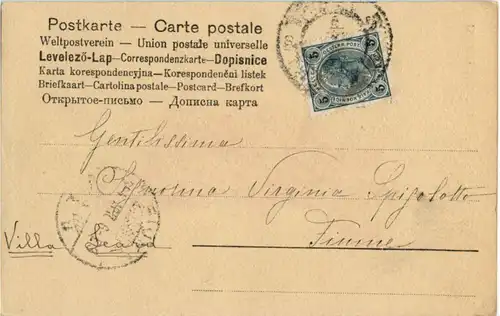 Postkarte — Carte postale
Weltpostverein — Union postale universelle
Levelező-Lap—Correspondenzkarte—Dopisnice
Karta korespondencyjna—Korespondenčni listek
Briefkaart—Cartolina postale—Postcard—Brefkort
Открытое-письмо — Дописна карта
5 5
5 5
Gentilissima
Signorina Virginia Spigolotto
Villa
Fiume